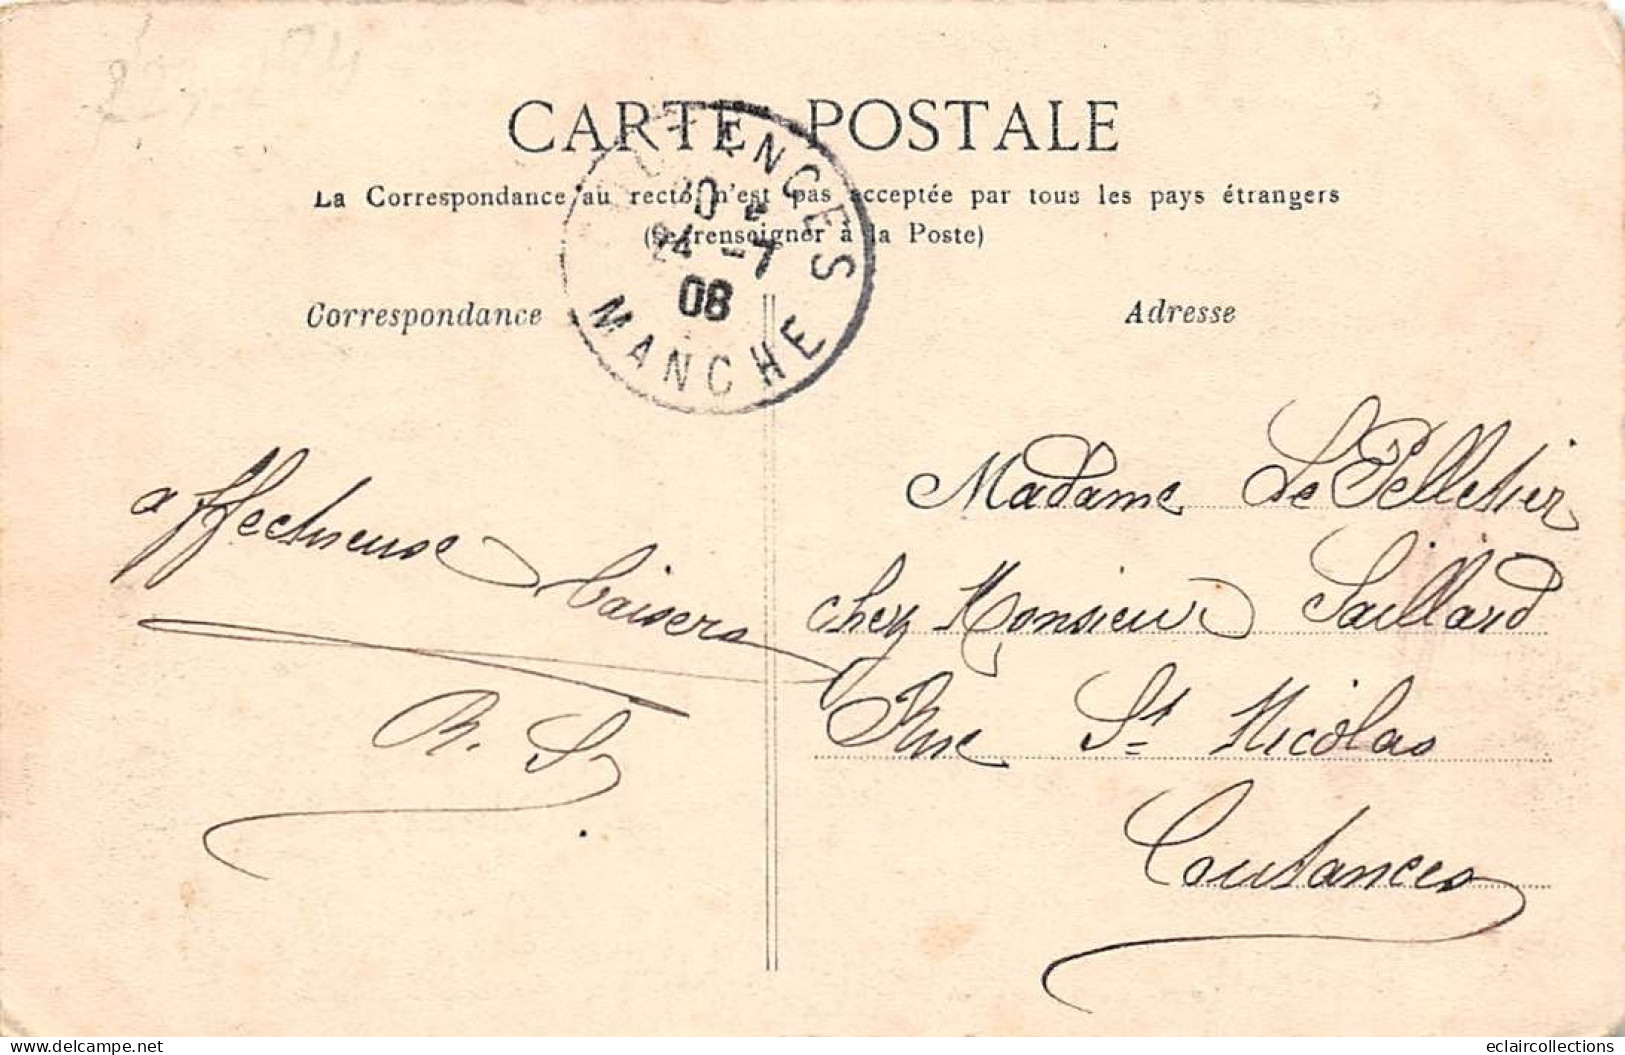 CARTE POSTALE
La Correspondance au recto n'est pas acceptée par tous les pays étrangers
(Se renseigner à la Poste)
COUTANCES
24 -7
08
MANCHE
Correspondance
Adresse
affectueuse baisers
R. S.
Madame Le Pelletier
chez Monsieur Saillard
Rue St Nicolas
Coutances
www.delcampe.net
eclaircollections